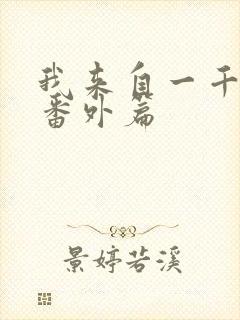 我来自一千
番外篇
景婷若溪